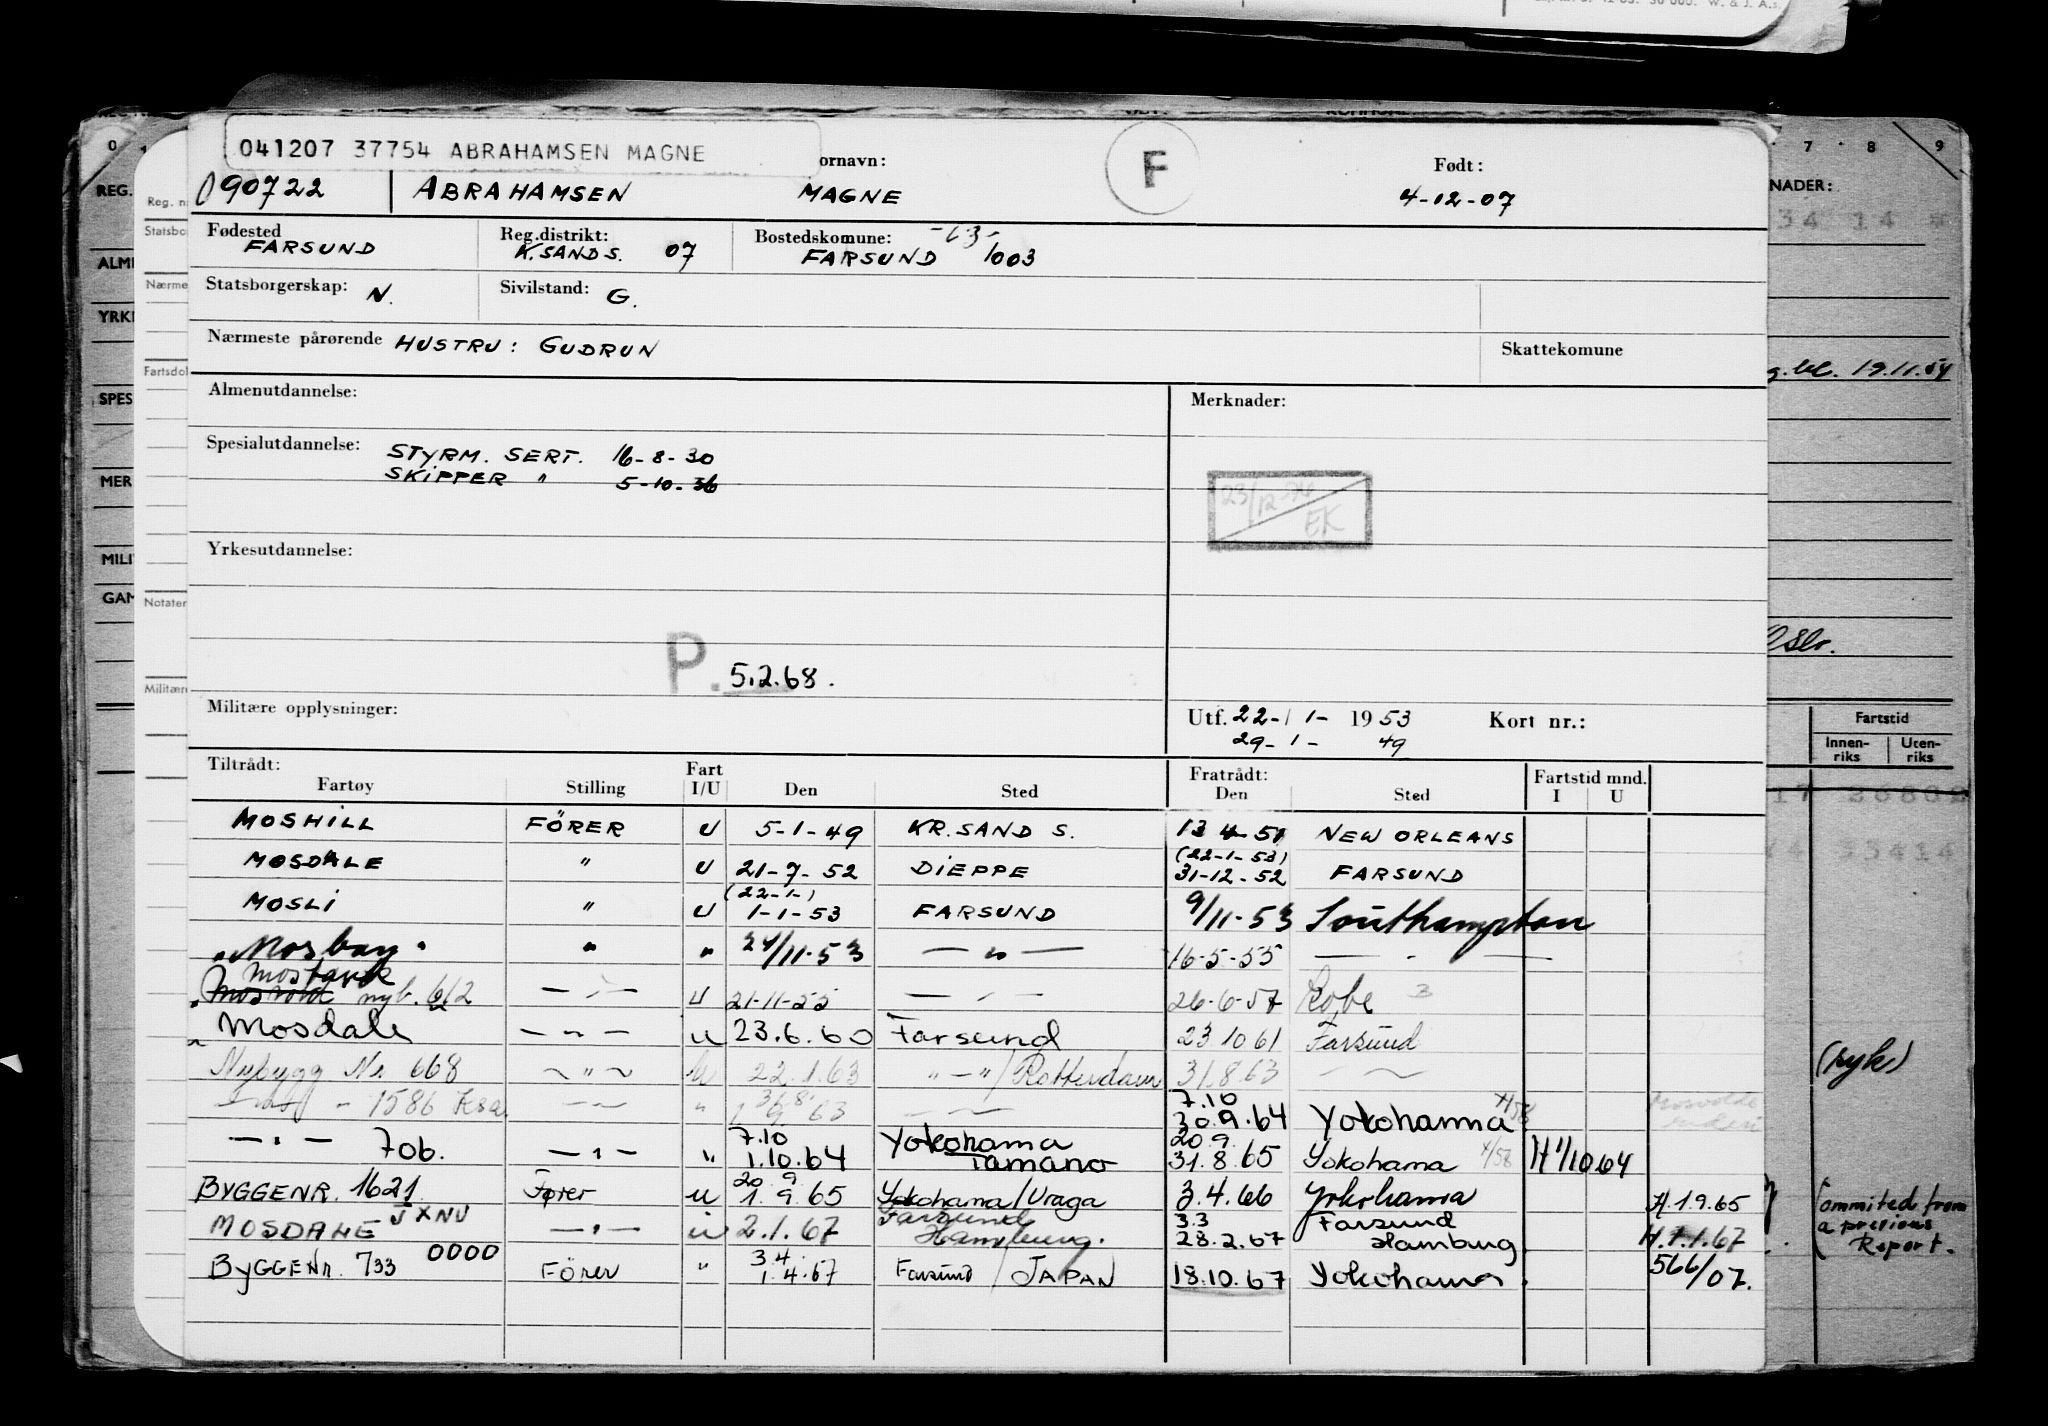 041207 37754 ABRAHAMSEN MAGNE
ornavn:
F
Født:
090722 ABRAHAMSEN MAGNE 4-12-07
Fødested FARSUND
Reg.distrikt: K.SAND S. 07
Bostedskomune: FARSUND 1003
Statsborgerskap: N.
Sivilstand: G.
Nærmeste pårørende HUSTRU: GUDRUN
Skattekomune
Almenutdannelse:
Merknader:
Spesialutdannelse: STYRM. SERT. 16-8-30
SKIPPER " 5-10-36
23/12-74
EK
Yrkesutdannelse:
P. 5.2.68.
Militære opplysninger:
Utf. 22-11-1953 Kort nr.:
29-1-49
Tiltrådt: Fart Fratrådt: Fartstid mnd.
Fartøy Stilling I/U Den Sted Den Sted I U
MOSHILL FÖRER U 5-1-49 KR.SAND S. 13 4-51 NEW ORLEANS
(22-1-53)
MOSDALE " U 21-7-52 DIEPPE 31-12-52 FARSUND
(22-1-)
MOSLI " U 1-1-53 FARSUND 9/11-53 Southampton
"Mosbay" " " 24/11-53 — " — 16-5-55 — " —
Mostank
nyb. 612 — " — U 21-11-55 — " — 26-6-57 Kobe
Mosdale — " — u 23.6.60 Farsund 23 10 61 Farsund
Nybygg Nr 668 " u 22.1.63 " - " / Rotterdam 31.8.63
31.8.
1586 Ksa. " 1 9 63
7.10
30.9.64 Yokohama
7.10 20.9.
— " — 706. — " — " 1.10.64 Yokohama Tamano 31.8.65 Yokohama 4/58 H 1/10 64
20 9
BYGGENR. 1621 Fører u 1.9.65 Yokohama/Uraga 3.4.66 Yokohama H.1.9.65
MOSDALE JXNV — " — u 2.1.67 Farsund Hamburg. 3.3 28.2.67 Farsund Hamburg. H.1.1.67
0000
3.4
BYGGENr. 733 Förer " 1.4.67 Farsund / JAPAN 18.10.67 Yokohama. 566/07.
REG.
ALM
YRK
SPES
MER
MILI
GAM
Reg. n
Statsbo
Nærme
Fartsdo
Notater
Militære
0
7 8 9
NADER:
34 14
19.11.54
Oslo.
Fartstid
Innen-riks Uten-riks
(syk)
Ommited from
a previous
Report.